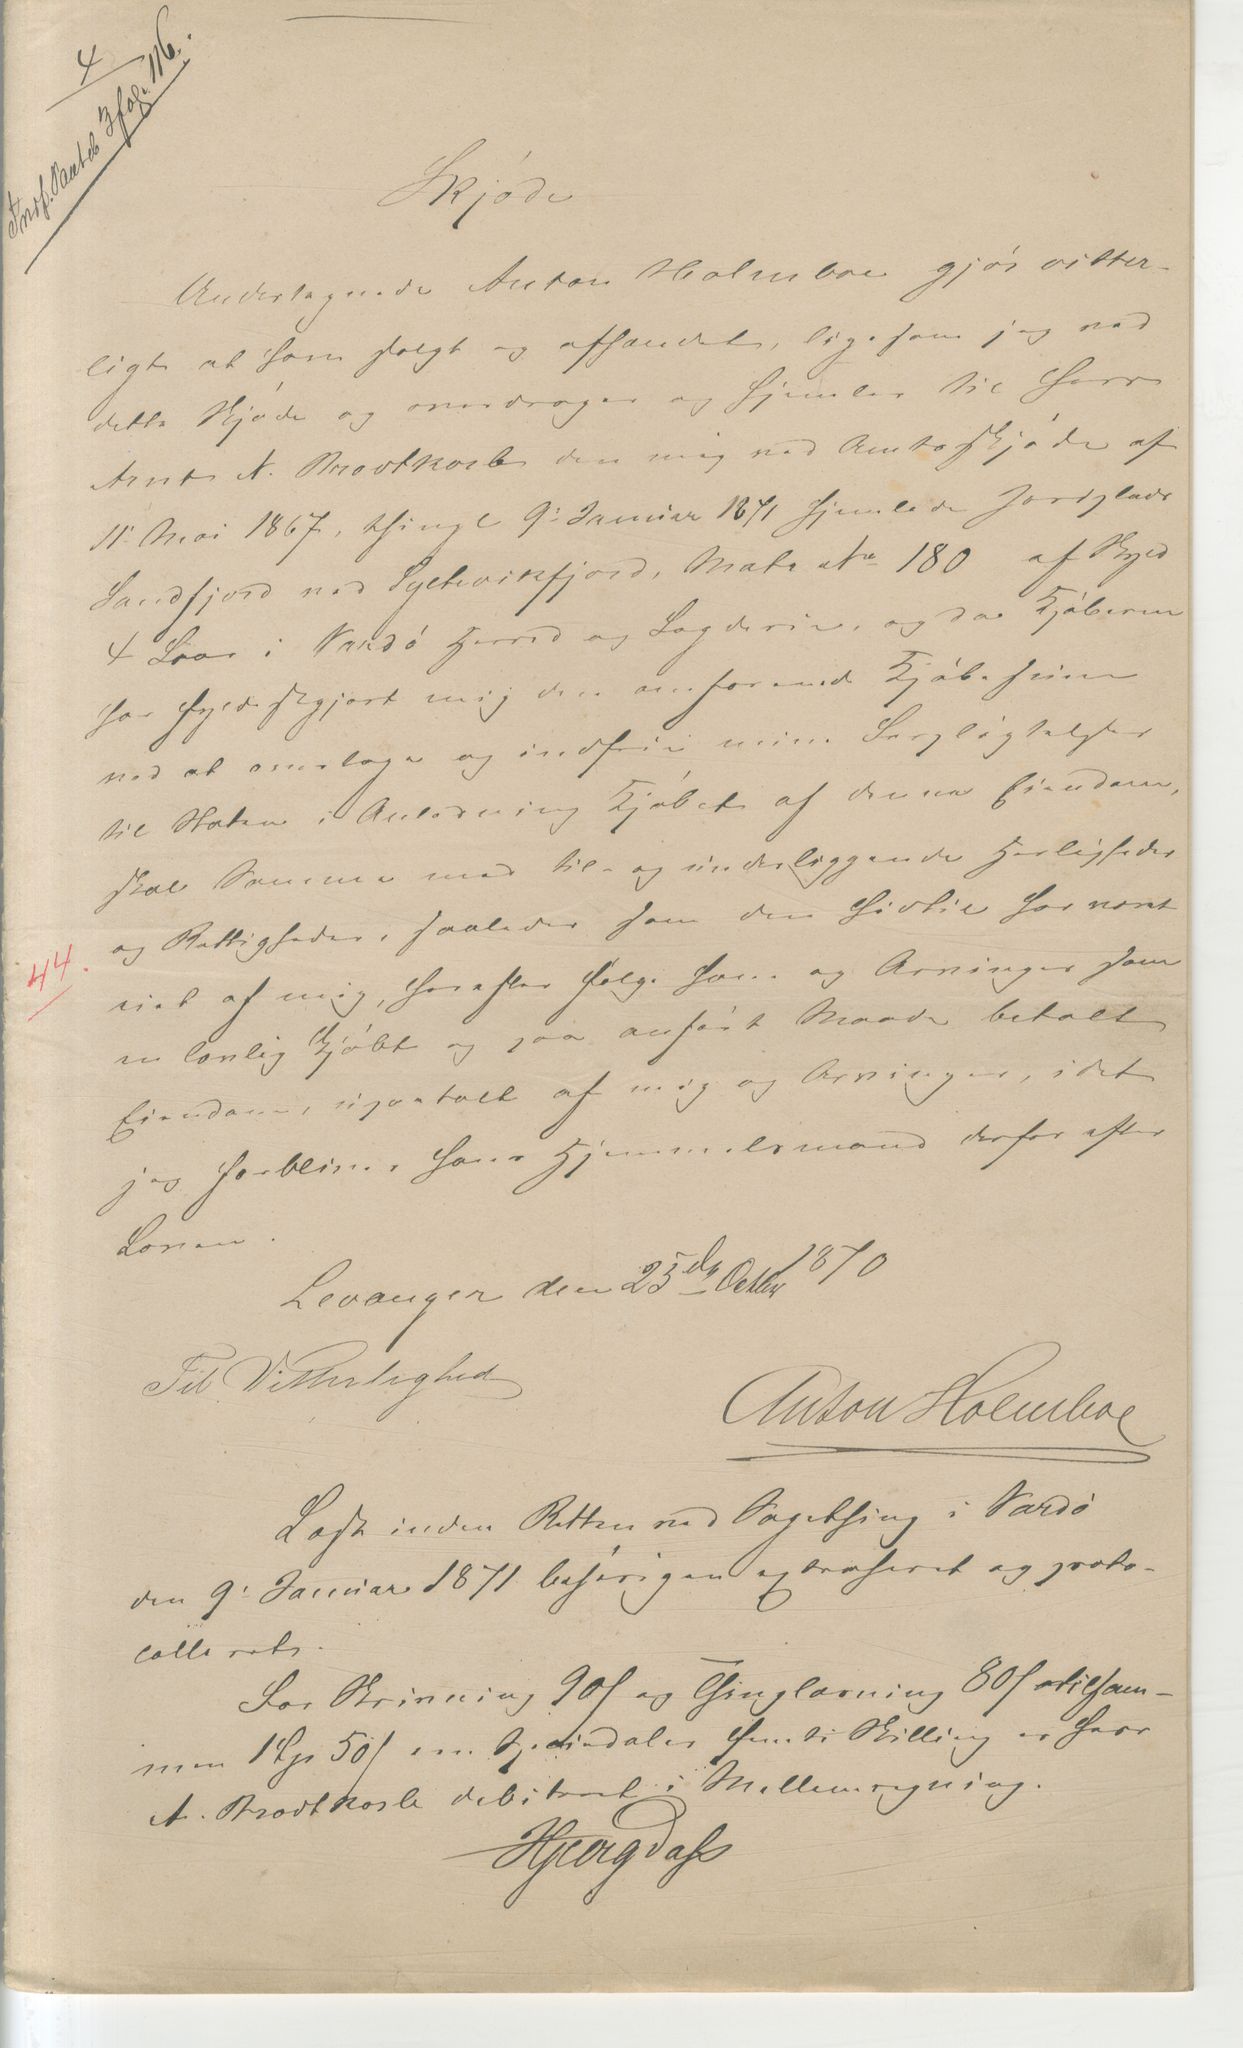 4
Indf. Panteb. 3 fog. 116.
Skjøde
Undertegnede Anton Holmboe gjør vitter-
ligt at have solgt og afhændet, ligesom jeg ved
dette Skjøde og overdrager og hjemler til Herr
Arnt A. Brodtkorb den mig ved Amtsskjøde af
11' Mai 1867, thingl. 9' Januar 1871 hjemlede Jordplads
Sandfjord ved Syltevikfjord, Matr No 180 af Skyld
4 Løver i Vardø Herred og Sogderie, og da Kjøberen
har fyldestgjort mig den omforenede Kjøbesum
ved at overtage og indfrie mine Forpligtelser
til Staten i Anledning Kjøbet af denne Eiendom,
skal Samme med til- og underliggende Herligheder
og Rettigheder, saaledes som den hidtil har været
eiet af mig, herefter følge ham og Arvinger som
en lovlig kjøbt og paa anført Maade betalt
Eiendom, upaatalt af mig og Arvinger, idet
jeg forbliver hans Hjemmelsmand derfor efter
Loven.
44.
Levanger den 25de Octbr 1870
Til Vitterlighed
Anton Holmboe
Læst inden Retten ved Sagething i Vardø
den 9' Januar 1871 behørigen extraheret og proto-
colleret.
For Skrivning 70 s og Thinglæsning 80 s tilsam-
men 1 Sp 50 s en Speciedaler femti Skilling er Herr
A. Brodtkorb debiteret i Mellemregning.